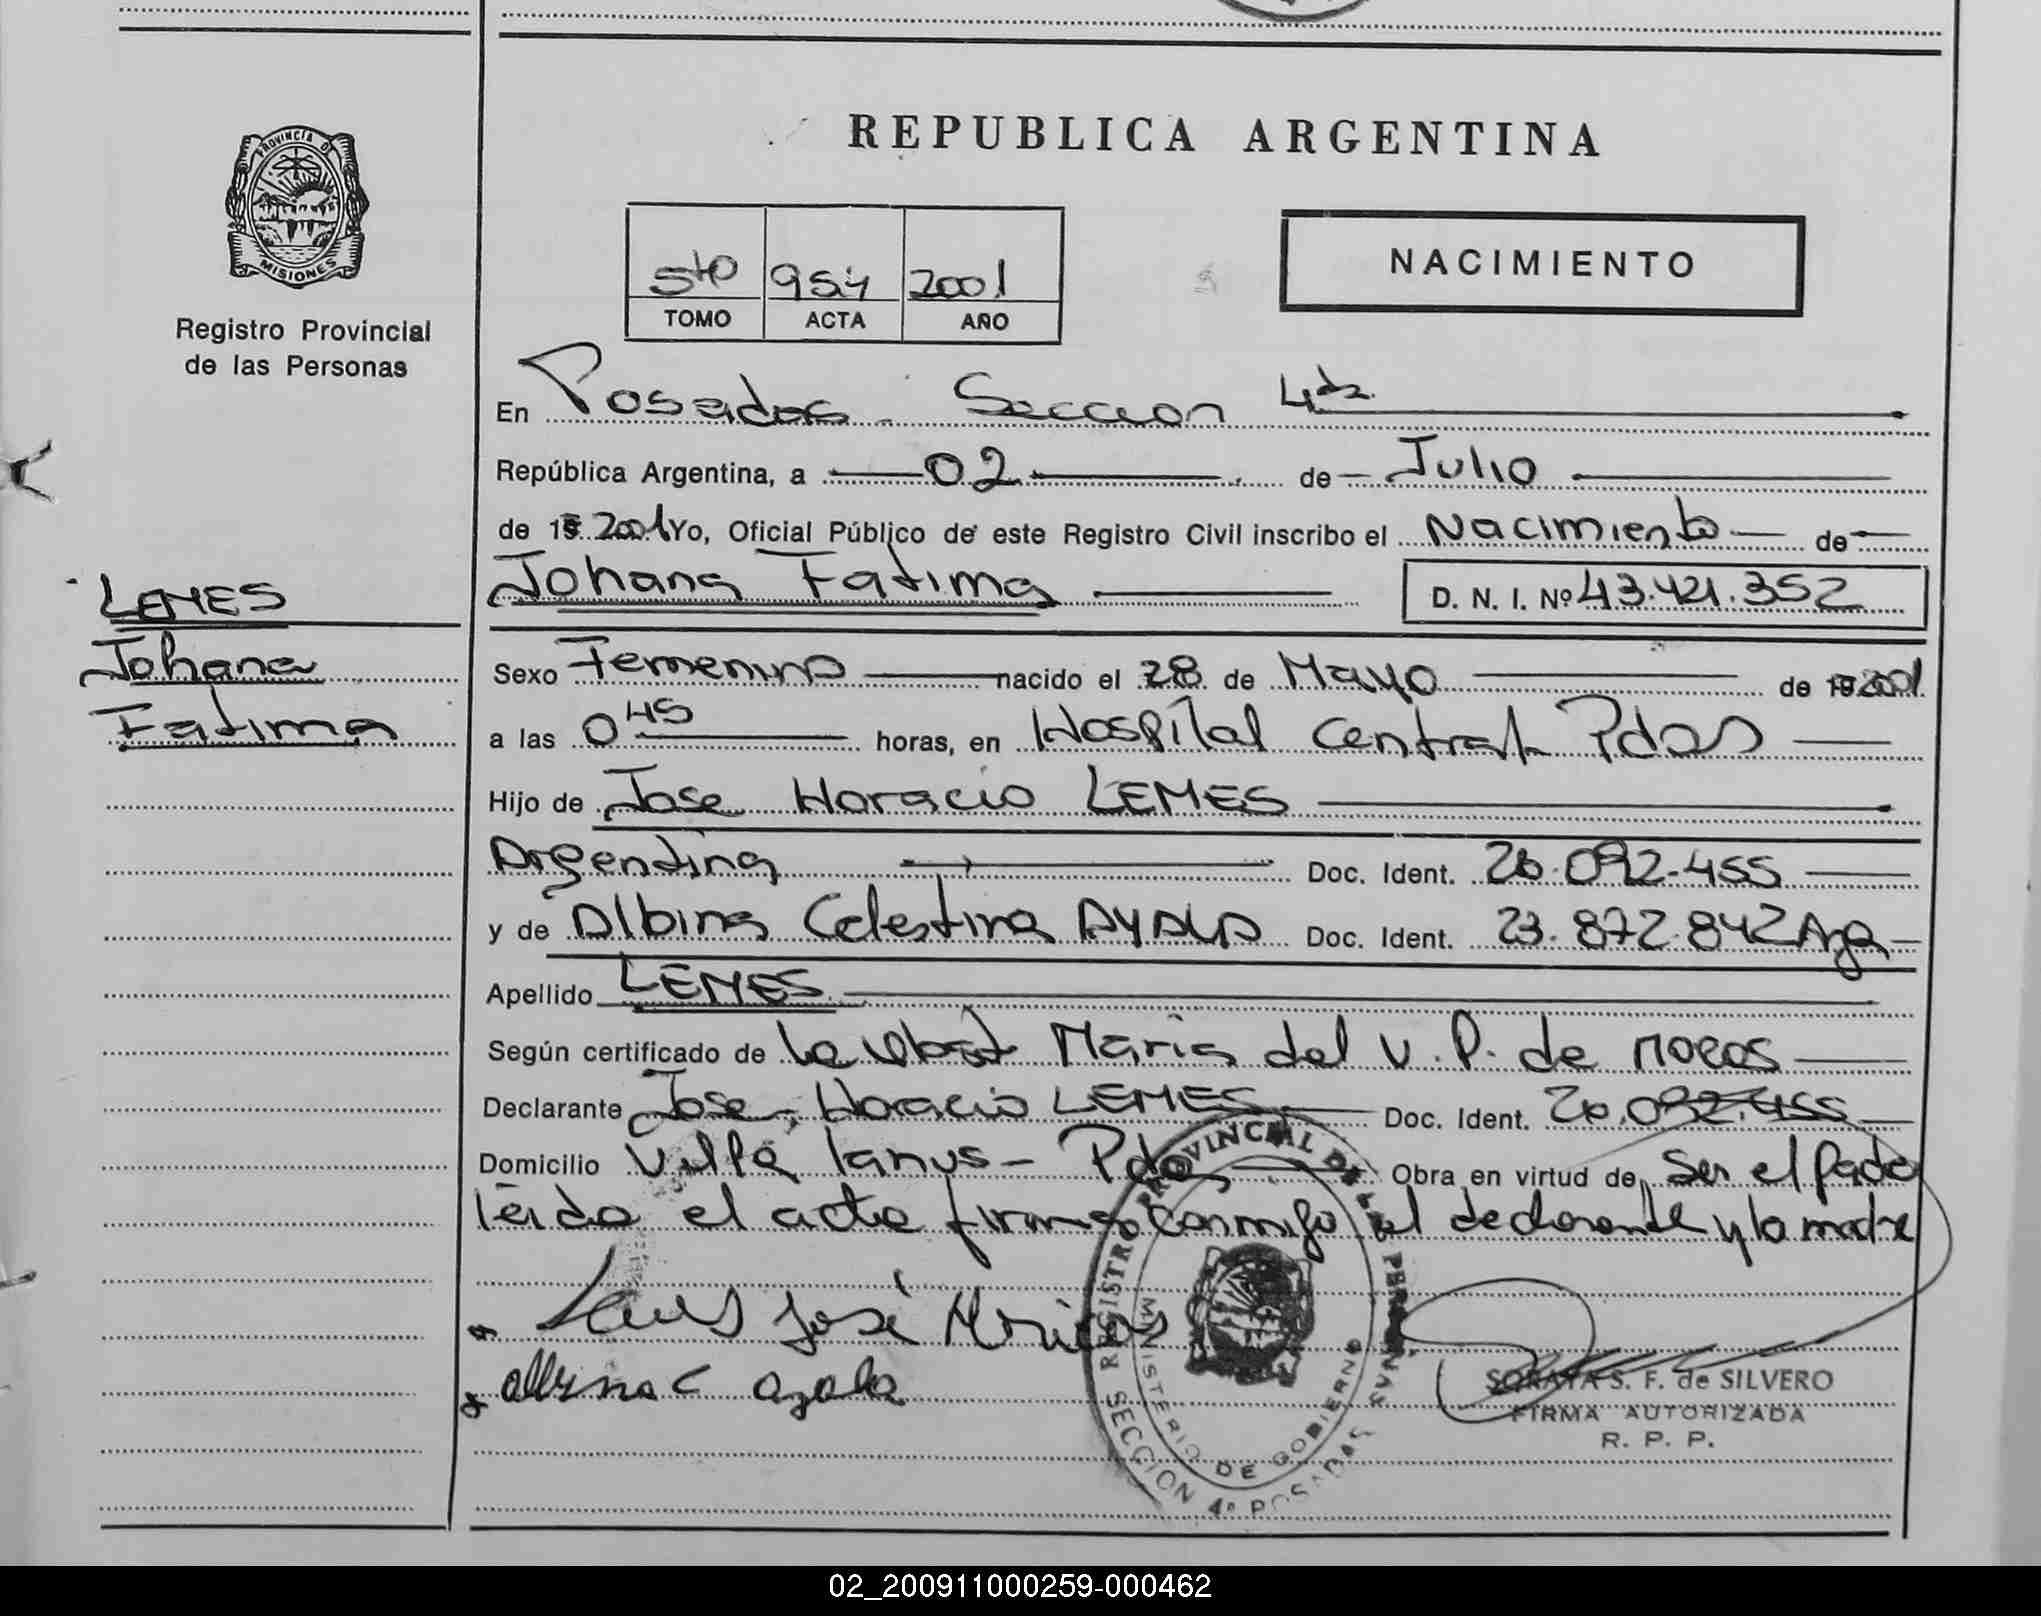 REPUBLICA ARGENTINA
PROVINCIA DE
MISIONES
Registro Provincial
de las Personas
5to 954 2001
TOMO ACTA AÑO
NACIMIENTO
En Posadas - Seccion 4ta
República Argentina, a 02 de Julio
de 19 2001 Yo, Oficial Público de este Registro Civil inscribo el Nacimiento de
Johana Fatima D. N. I. Nº 43.421.352
LEMES
Johana
Fatima
Sexo Femenino nacido el 28 de Mayo de 19 2001
a las 0 45 horas, en Hospital Central Pdas
Hijo de Jose Horacio LEMES
Argentina Doc. Ident. 26.092.455
y de Albina Celestina AYALA Doc. Ident. 23.872.842 Arga
Apellido LEMES
Según certificado de la Obst Maria del V. P. de
Declarante Jose Horacio LEMES Doc. Ident. 26.092.455
Domicilio Villa Lanus - Pdas Obra en virtud de Ser el Padre
leida el acta firman conmigo el declarante y la madre
Lemes José Horacio
Albina C Ayala
REGISTRO PROVINCIAL DE LAS PERSONAS
MINISTERIO DE GOBIERNO
SECCION 4ª POSADAS
SORAYA S. F. de SILVERO
FIRMA AUTORIZADA
R. P. P.
02_200911000259-000462